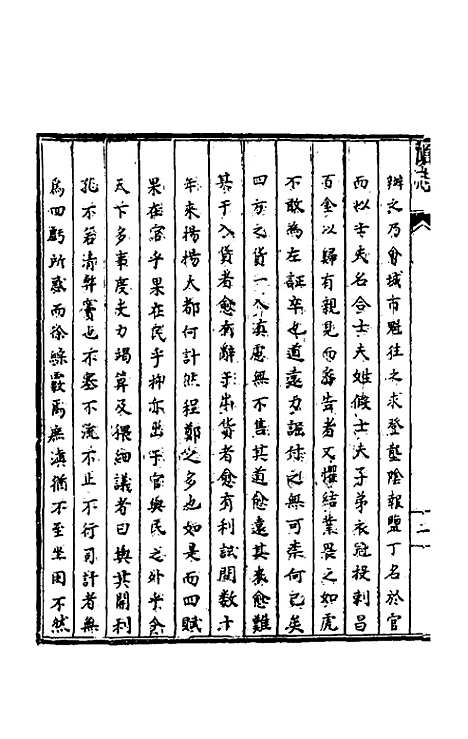 滇志
辨之乃會城市魁往之求登壟陰報鹽丁名於官
而以士夫名合士夫姓候士夫子弟衣冠投刺冒
百金以歸有親見而爲告者又懼結業畏之如虎
不敢為左証卒也道遠力詘付之無可柰何已矣
四方之貨一入滇處無不售其道愈遠其来愈難
其于入貨者愈有辭于出貨者愈有利試問数十
年來揚揚大都何計然程鄭之多也如是而四賦
果在官乎果在民乎抑亦出于官與民之外乎今
天下多事度支力竭算及猥細議者曰與其開利
孔不若清弊竇也不塞不流不止不行司計者無
爲四虧所惑而徐綜覈焉無滇猶不至坐困不然
二